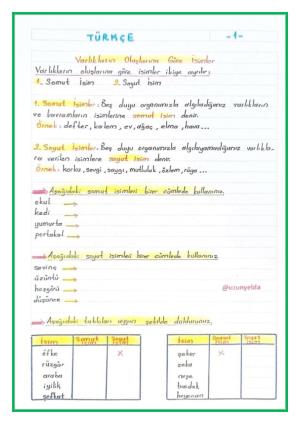 TÜRKÇE -1-
Varlıkların Oluşlarına Göre İsimler
Varlıkların oluşlarına göre isimler ikiye ayrılır;
1. Somut İsim 2. Soyut İsim
1. Somut İsimler: Beş duyu organımızla algıladığımız varlıkların
ve kavramların isimlerine somut isim denir.
Örnek: defter, kalem, ev, ağaç, elma, hava...
2. Soyut İsimler: Beş duyu organımızla algılayamadığımız varlıkla-
ra verilen isimlere soyut isim denir.
Örnek: korku, sevgi, saygı, mutluluk, özlem, rüya...
Aşağıdaki somut isimleri birer cümlede kullanınız.
okul
kedi
yumurta
portakal
Aşağıdaki soyut isimleri birer cümlede kullanınız.
sevinç
üzüntü
hoşgörü
düşünce
@uzunyelda
Aşağıdaki tabloları uygun şekilde doldurunuz.
İsim Somut İsim Soyut İsim
öfke X
rüzgâr
araba
iyilik
şefkat
İsim Somut İsim Soyut İsim
şeker X
zeka
neşe
bardak
heyecan